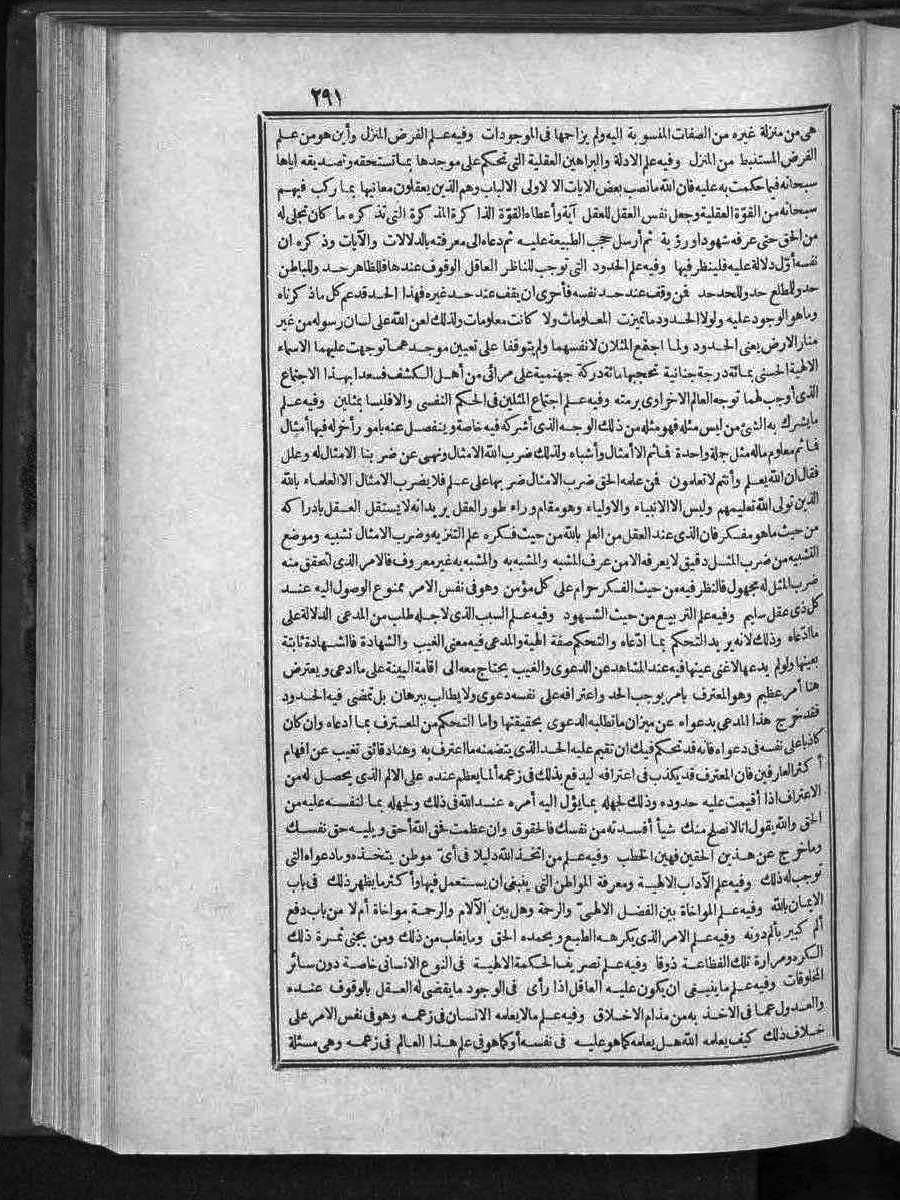 ٢٩١
هى من منزلة غيره من الصفات المنسوبة اليه ولم يزاحمها فى الموجودات وفيه علم الفرض المنزل وأين هو من علم
الفرض المستنبط من المنزل وفيه علم الادلة والبراهين العقلية التى تحكم على موجدها بما تستحقه وتصديقه اياها
سبحانه فيما حكمت به عليه فان الله ما نصب بعض الايات الا لاولى الالباب وهم الذين يعقلون معانيها بما ركب فيهم
سبحانه من القوّة العقلية وجعل نفس العقل للعقل آية وأعطاه القوّة الذاكرة المذكرة التى تذكره ما كان تجلى له
من الحق حتى عرفه شهودا ورؤية ثم أرسل حجب الطبيعة عليه ثم دعاه الى معرفته بالدلالات والآيات وذكره ان
نفسه أوّل دلالة عليه فلينظر فيها وفيه علم الحدود التى توجب للناظر العاقل الوقوف عندها فللظاهر حد وللباطن
حد وللمطلع حد وللحد حد فمن وقف عند حد نفسه فأحرى ان يقف عند حد غيره فهذا الحد قد عم كل ما ذكرناه
وما هو الوجود عليه ولولا الحدود ما تميزت المعلومات ولا كانت معلومات ولذلك لعن الله على لسان رسوله من غير
منار الارض يعنى الحدود ولما اجتمع المثلان لانفسهما ولم يتوقفا على تعيين موجد هما توجهت عليهما الاسماء
الالهية الحسنى بمائة درجة جنانية تحجبها مائة دركة جهنمية على مرائى من أهل الكشف فسعد ابهذا الاجتماع
الذى أوجب لهما توجه العالم الاخراوى برمته وفيه علم اجتماع المثلين فى الحكم النفسى والا فليسا بمثلين وفيه علم
ما يشرك به الشئ من ليس مثله فهو مثله من ذلك الوجه الذى أشركه فيه خاصة وينفصل عنه بامور أخر له فيها أمثال
فما ثم معلوم ماله مثل جملة واحدة فما ثم الا أمثال وأشباه ولذلك ضرب الله الامثال ونهى عن ضربنا الامثال له وعلل
فقال ان الله يعلم وأنتم لا تعلمون فمن علمه الحق ضرب الامثال ضربها على علم فلا يضرب الامثال الا العلماء بالله
الذين تولى الله تعليمهم وليس الا الانبياء والاولياء وهو مقام وراء طور العقل يريد انه لا يستقل العقل بادراكه
من حيث ما هو مفكر فان الذى عند العقل من العلم بالله من حيث فكره علم التنزيه وضرب الامثال تشبيه وموضع
التشبيه من ضرب المثل دقيق لا يعرفه الا من عرف المشبه والمشبه به والمشبه به غير معروف فالامر الذى لتحقق منه
ضرب المثل له مجهول فالنظر فيه من حيث الفكر حرام على كل مؤمن وهو فى نفس الامر ممنوع الوصول اليه عند
كل ذى عقل سليم وفيه علم التربيع من حيث الشهود وفيه علم السبب الذى لاجله طلب من المدعى الدلالة على
ما ادّعاه وذلك لانه يريد التحكم بما ادّعاه والتحكم صفة الهية والمدعى فيه معنى الغيب والشهادة فالشهادة ثابتة
بعينها ولو لم يدعها لاغنى عينها فيه عند المشاهد عن الدعوى والغيب يحتاج معه الى اقامة البينة على ما ادعى ويعترض
هنا أمر عظيم وهو المعترف بامر يوجب الحد واعترافه على نفسه دعوى ولا يطالب ببرهان بل تمضى فيه الحدود
فقد خرج هذا المدعى بدعواه عن ميزان ما تطلبه الدعوى بحقيقتها واما التحكم من المعترف بما ادعاه وان كان
كاذبا على نفسه فى دعواه فانه قد تحكم فيك ان تقيم عليه الحد الذى يتضمنه ما اعترف به وهنا دقائق تغيب عن افهام
أكثر العارفين فان المعترف قد يكذب فى اعترافه ليدفع بذلك فى زعمه ألما يعظم عنده على الالم الذى يحصل له من
الاعتراف اذا أقيمت عليه حدوده وذلك لجهله بما يؤل اليه أمره عند الله فى ذلك ولجهله بما لنفسه عليه من
الحق والله يقول انا لا نصلح منك شيأ أفسدته من نفسك فالحقوق وان عظمت فحق الله أحق ويليه حق نفسك
وما خرج عن هذين الحقين فهين الخطب وفيه علم من اتخذ الله دليلا فى أىّ موطن يتخذه وما دعواه التى
توجب له ذلك وفيه علم الآداب الالهية ومعرفة المواطن التى ينبغى ان يستعمل فيها وأكثر ما يظهر ذلك فى باب
الايمان بالله وفيه علم المواخاة بين الفضل الالهىّ والرحمة وهل بين الآلام والرحمة مواخاة أم لا من باب دفع
ألم كبير بألم دونه وفيه علم الامر الذى يكرهه الطبع ويحمده الحق وما يغلب من ذلك ومن يجنى ثمرة ذلك
الكره ومرارة تلك الفظاعة ذوقا وفيه علم تصريف الحكمة الالهية فى النوع الانسانى خاصة دون سائر
المخلوقات وفيه علم ما ينبغى ان يكون عليه العاقل اذا رأى فى الوجود ما يقضى له العقل بالوقوف عنده
والعدول عما فى الاخذ به من مذام الاخلاق وفيه علم ما لا يعلمه الانسان فى زعمه وهو فى نفس الامر على
خلاف ذلك كيف يعلمه الله هل يعلمه كما هو عليه فى نفسه أو كما هو فى علم هذا العالم فى زعمه وهى مسئلة